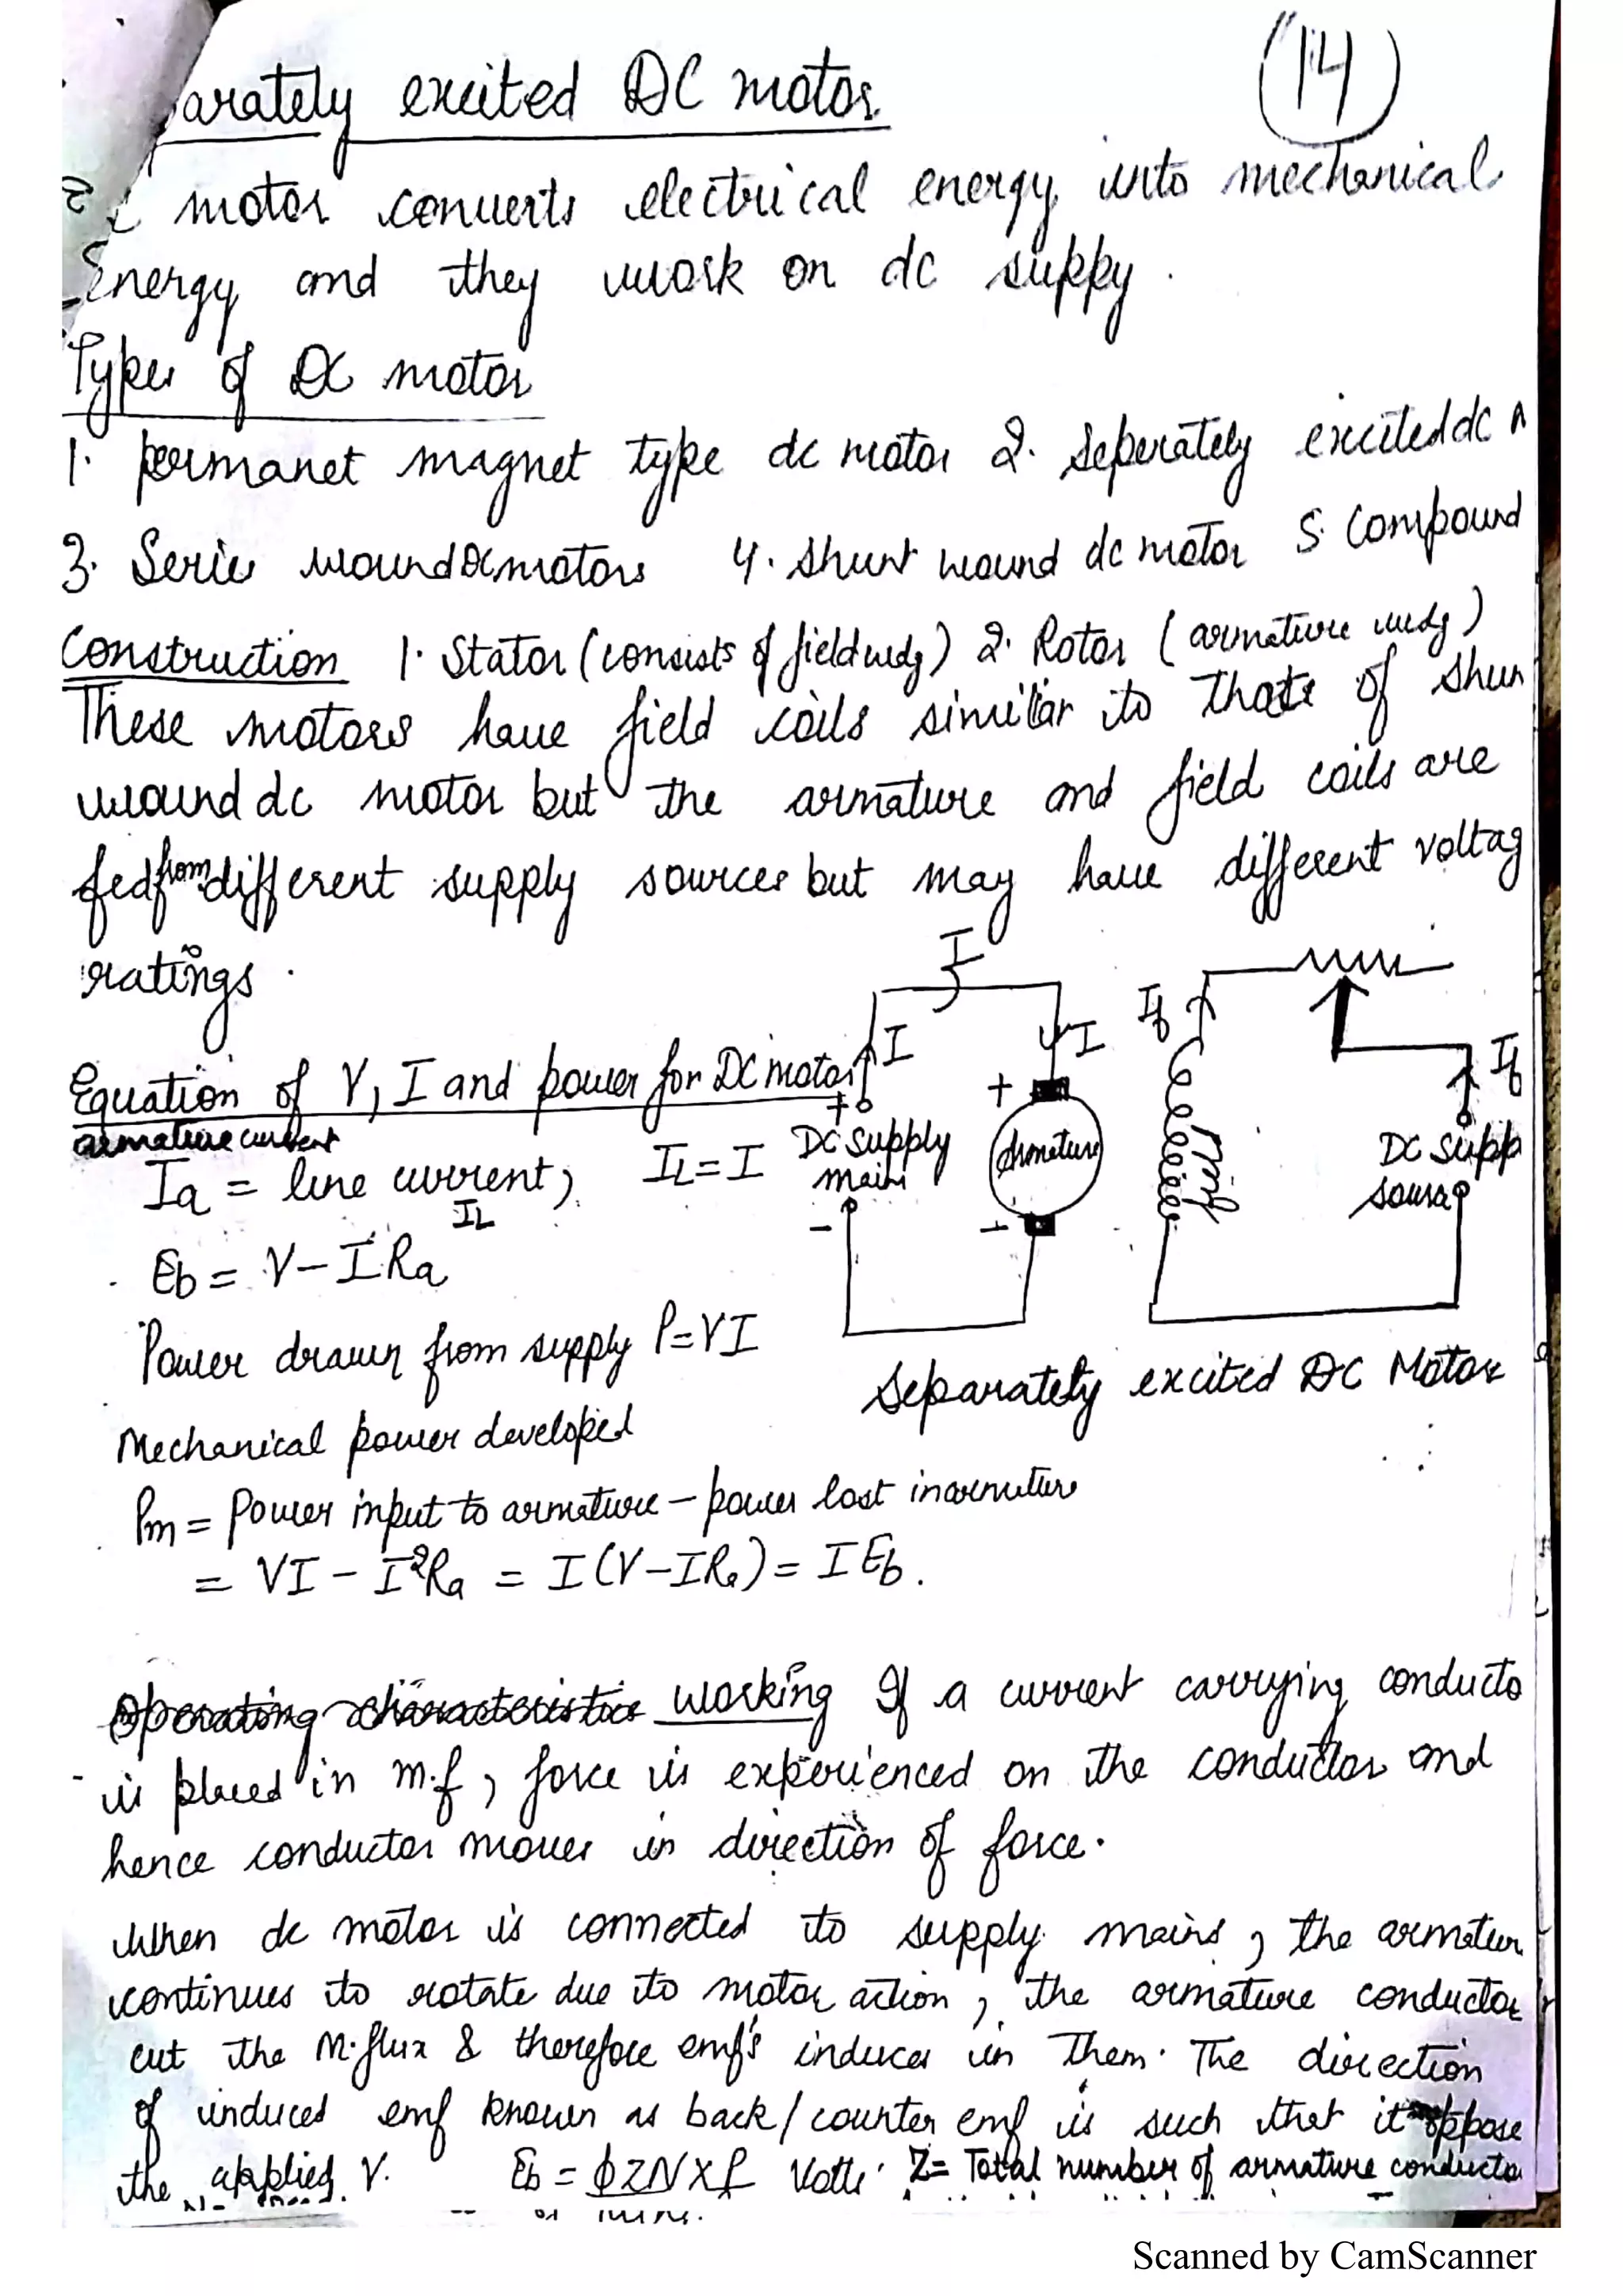 arately excited DC motor
(14)
motor converts electrical energy into mechanical
Energy and they work on dc supply.
Types of DC motor
1. permanet magnet type dc motor 2. seperately excited dc
3. Series wound DC motors 4. shunt wound dc motor 5. Compound
Construction 1. Stator (consists of field wdg) 2. Rotor (armature wdg)
These motors have field coils similar to thats of shun
wound dc motor but the armature and field coils are
fed from different supply sources but may have different voltag
ratings.
Equation of V, I and power for DC motor
armature current
Ia = line current, IL = I
IL
Eb = V - IRa
Power drawn from supply P = VI
Mechanical power developed
Pm = Power input to armature - power lost in armature
= VI - I²Ra = I(V - IRa) = IEb.
I
I
I
+
DC supply
mains
-
+
Armature
-
If
If
DC supp
source
Separately excited DC Motor
Operating characteristics working If a current carrying conducto
is placed in m.f, force is experienced on the conductor and
hence conductor moves in direction of force.
When dc motor is connected to supply mains, the armatur
continues to rotate due to motor action, the armature conductor
cut the M.flux & therefore emf's induces in them. The direction
of induced emf known as back/counter emf is such that it oppose
the applied V. Eb = ΦZN×P Volts. Z = Total number of armature conducto
Scanned by CamScanner